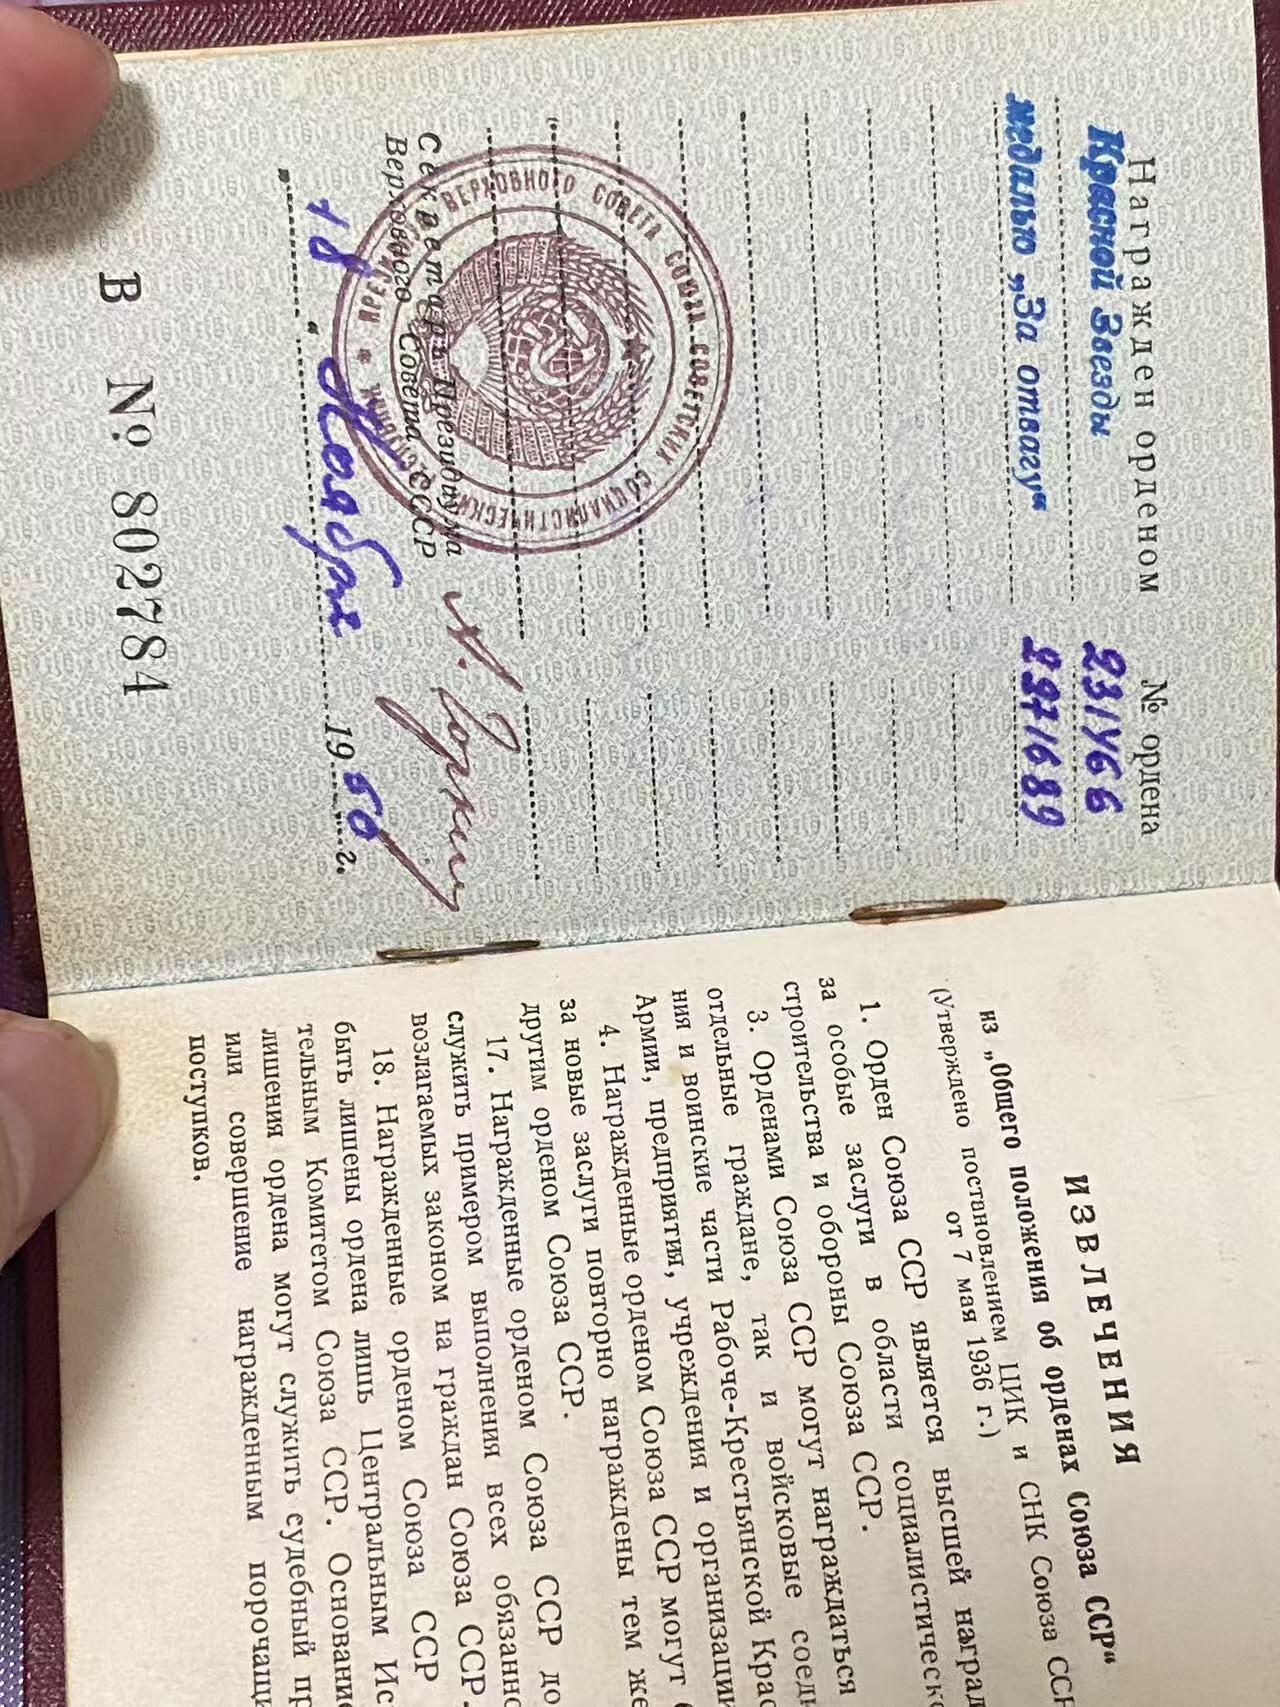 Награжден орденом № ордена
Красной Звезды 231466
медалью „За отвагу“ 2271689
ПРЕЗИДИУМ ВЕРХОВНОГО СОВЕТА СОЮЗА СОВЕТСКИХ СОЦИАЛИСТИЧЕСКИХ
Секретарь Президиума
Верховного Совета СССР
А. Горкин
„18“ Ноября 1950 г.
В № 802784
ИЗВЛЕЧЕНИЯ
из „Общего положения об орденах Союза ССР“
(Утверждено постановлением ЦИК и СНК Союза ССР
от 7 мая 1936 г.)
1. Орден Союза ССР является высшей наград
за особые заслуги в области социалистическо
строительства и обороны Союза ССР.
3. Орденами Союза ССР могут награждаться
отдельные граждане, так и войсковые соеди
ния и воинские части Рабоче-Крестьянской Крас
Армии, предприятия, учреждения и организации
4. Награжденные орденом Союза ССР могут б
за новые заслуги повторно награждены тем же
другим орденом Союза ССР.
17. Награжденные орденом Союза ССР до
служить примером выполнения всех обязанно
возлагаемых законом на граждан Союза ССР.
18. Награжденные орденом Союза ССР
быть лишены ордена лишь Центральным Ис
тельным Комитетом Союза ССР. Основание
лишения ордена могут служить судебный пр
или совершение награжденным порочащи
поступков.